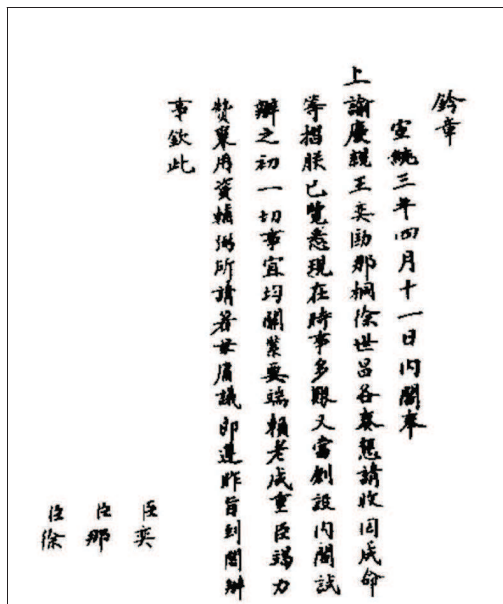 鈐章
宣統三年四月十一日內閣奉
上諭慶親王奕劻那桐徐世昌各奏懇請收回成命
等摺朕已覽悉現在時事多艱又當創設內閣試
辦之初一切事宜均關緊要端賴老成重臣竭力
贊襄用資輔弼所請著毋庸議即遵昨旨到閣辦
事欽此
臣奕
臣那
臣徐